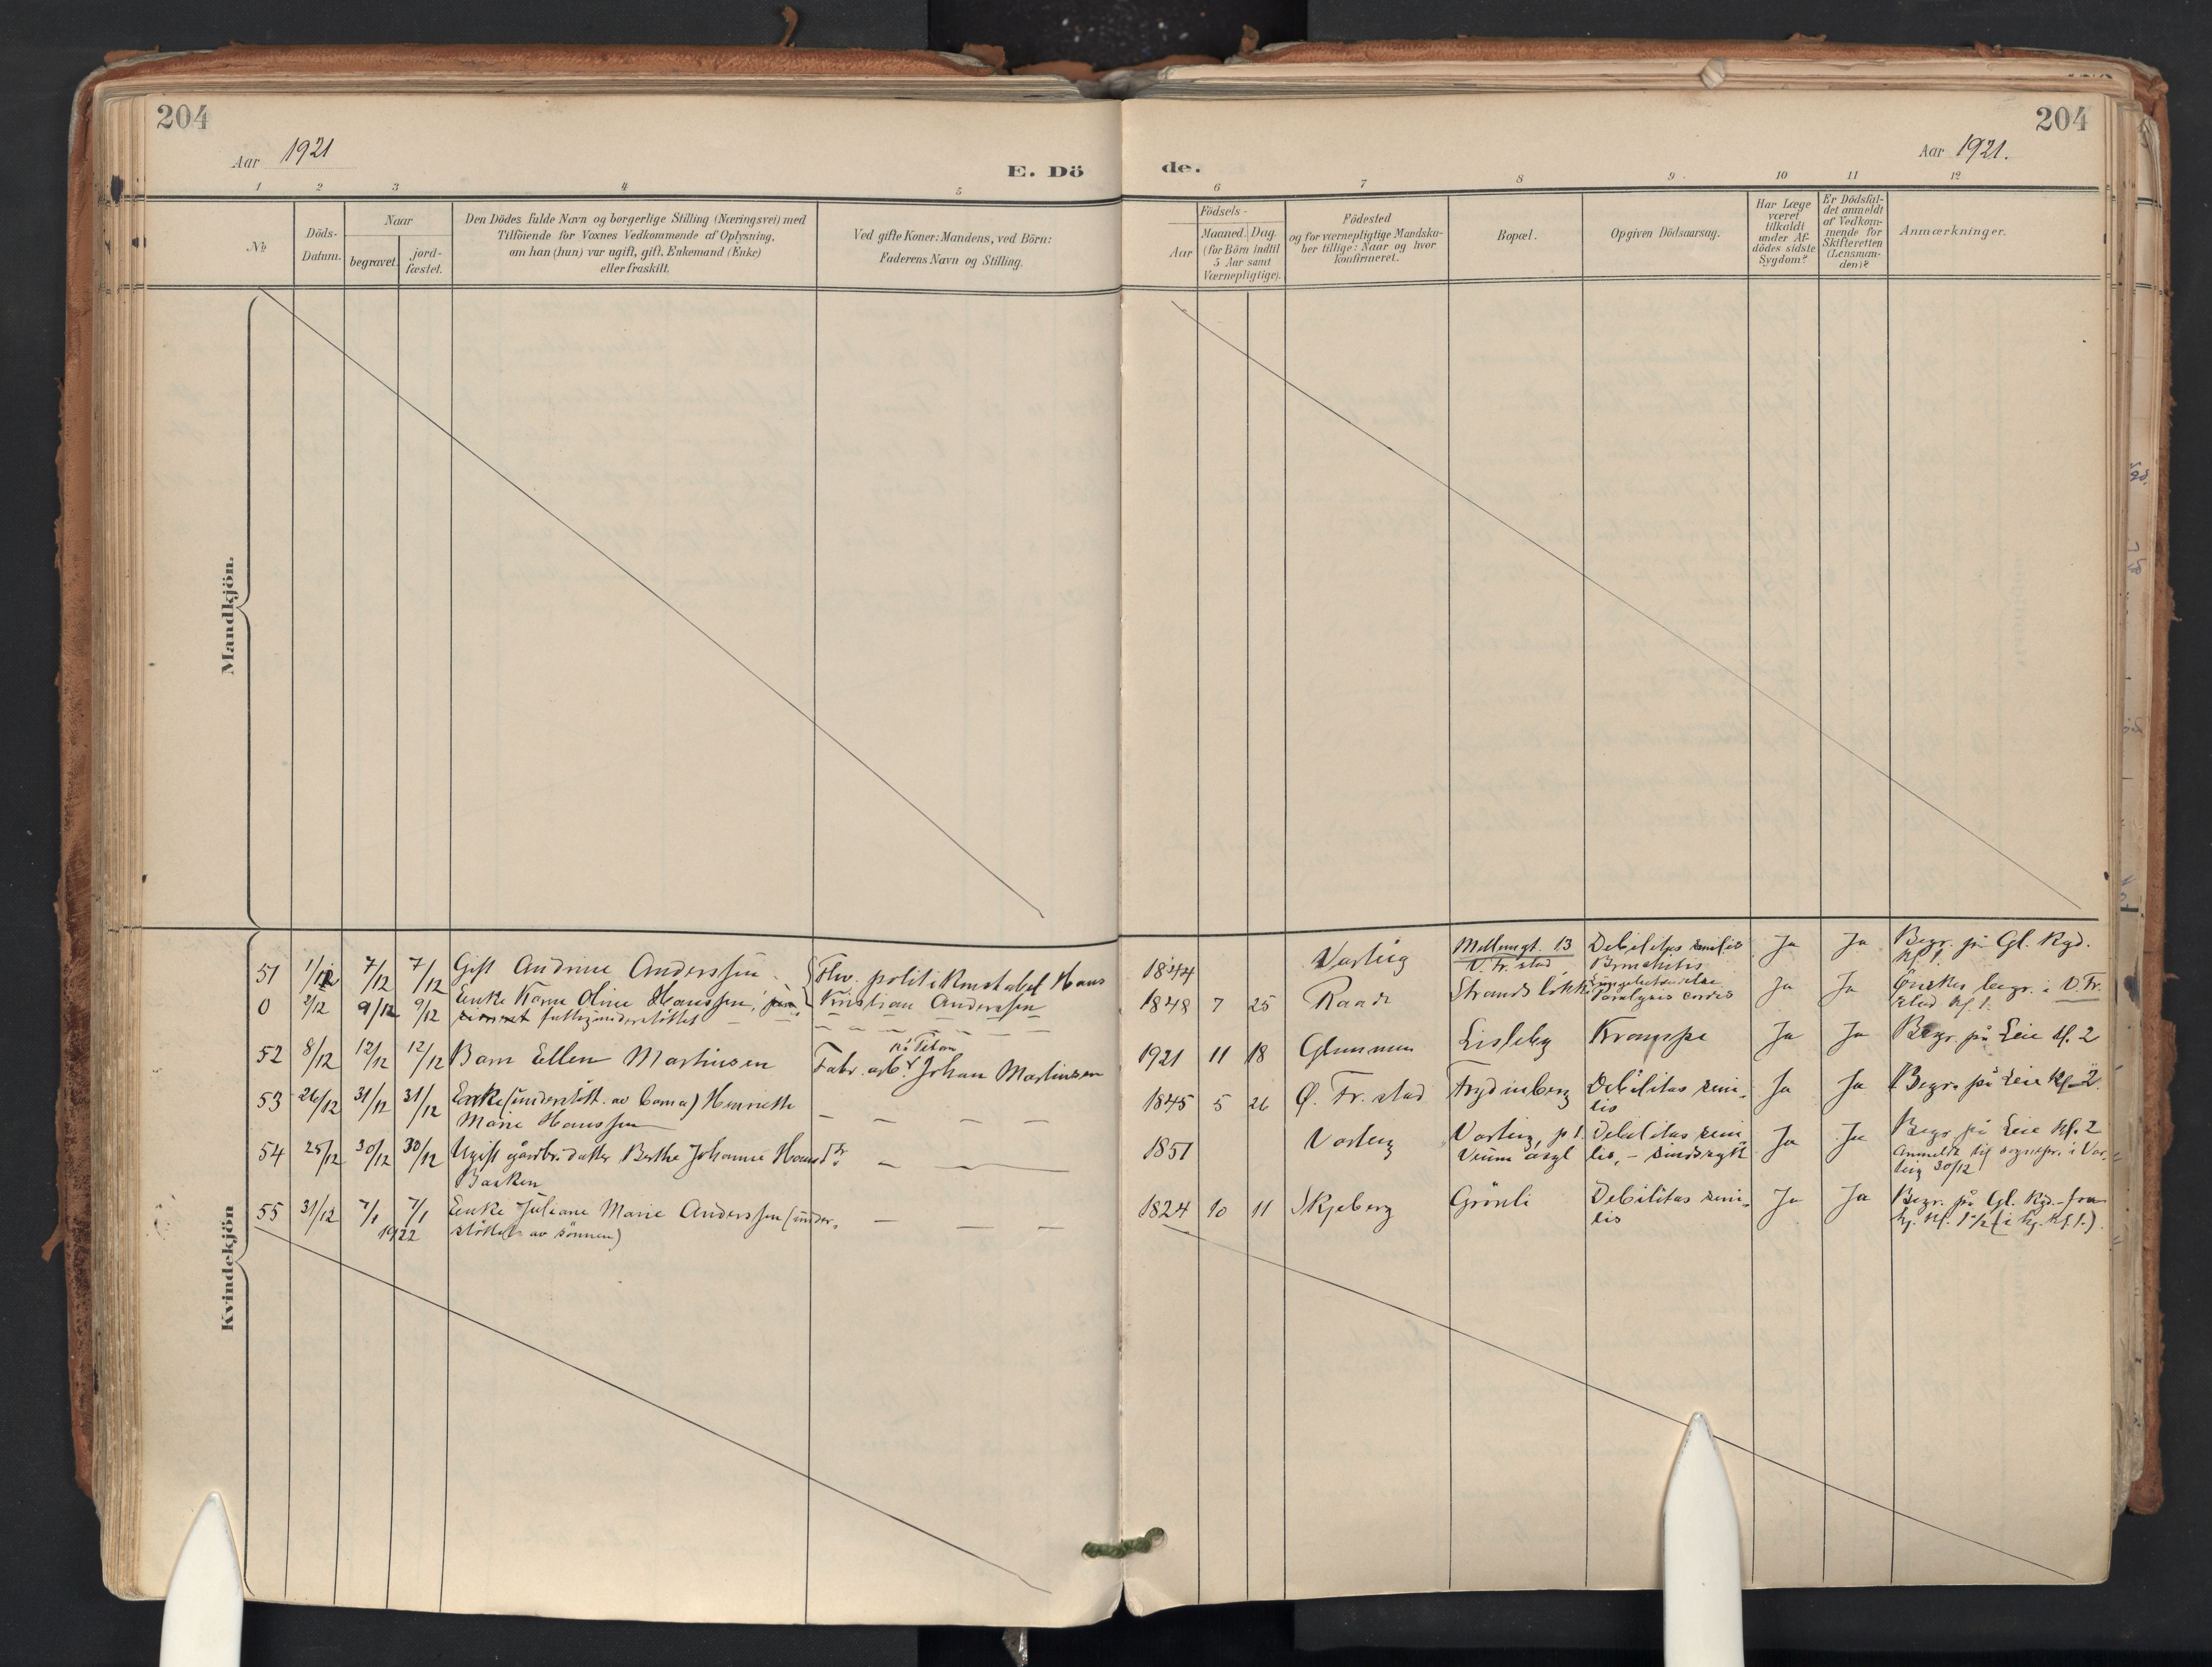 204
Aar 1921
E. Dö
1 2 3 4 5
№
Döds-
Datum.
Naar
begravet.
jord-
fæstet.
Den Dödes fulde Navn og borgerlige Stilling (Næringsvei) med
Tilföiende for Voxnes Vedkommende af Oplysning,
om han (hun) var ugift, gift, Enkemand (Enke)
eller fraskilt.
Ved gifte Koner: Mandens, ved Börn:
Faderens Navn og Stilling.
Mandkjön.
Kvindekjön
51 1/12 7/12 7/12 Gift Andrine Anderssen. Fhv. politikonstabel Hans
Kristian Anderssen
0 2/12 9/12 9/12 Enke Karen Oline Hanssen,
fattigunderstöttet — — —
52 8/12 12/12 12/12 Barn Ellen Martinsen Fabr. arb. Johan Martinsen
på Titan
53 26/12 31/12 31/12 Enke (understött. av barna) Henriette
Marie Hanssen — — —
54 25/12 30/12 30/12 Ugift gårdbr. datter Berthe Johanne Hansd.
Bakken — —
55 31/12 7/1 7/1 Enke Juliane Marie Anderssen (under-
1922 støttet av sönnen) — — —
204
Aar 1921.
de.
6 7 8 9 10 11 12
Aar
Födsels-
Maaned. Dag.
(for Börn indtil
5 Aar samt
Værnepligtige).
Födested
og for værnepligtige Mandska-
ber tillige: Naar og hvor
konfirmeret.
Bopæl.
Opgiven Dödsaarsag.
Har Læge
været
tilkaldt
under Af-
dödes sidste
Sygdom?
Er Dödsfal-
det anmeldt
af Vedkom-
mende for
Skifteretten
(Lensman-
den)?
Anmærkninger.
1844 Varteig Mellemgt. 13 Debilitas senilis Ja Ja Begr. på Gl. Kgd.
V. Fr.stad Bronchitis Kl. 1.
1848 7 25 Raade Strandsløkk. Lungebetændelse Ja Ja Önskes begr. i V. Fr.
Paralysis cordis stad Kl. 1.
1921 11 18 Glemmen Lisleby Krampe Ja Ja Begr. på Leie Kl. 2
1845 5 26 Ø. Fr. stad Frydenberg Debilitas seni- Ja Ja Begr. på Leie Kl. 2
lis
1851 Varteig Varteig, p. t. Debilitas seni- Ja Ja Begr. på Leie Kl. 2
Veum asyl lis, - sindssyk Anmeldt til sognepr. i Var-
teig 30/12
1824 10 11 Skjeberg Grönli Debilitas seni- Ja Ja Begr. på Gl. Kgd. fra
lis kj. Kl. 1 1/2 (i kj. Kl. 1.).